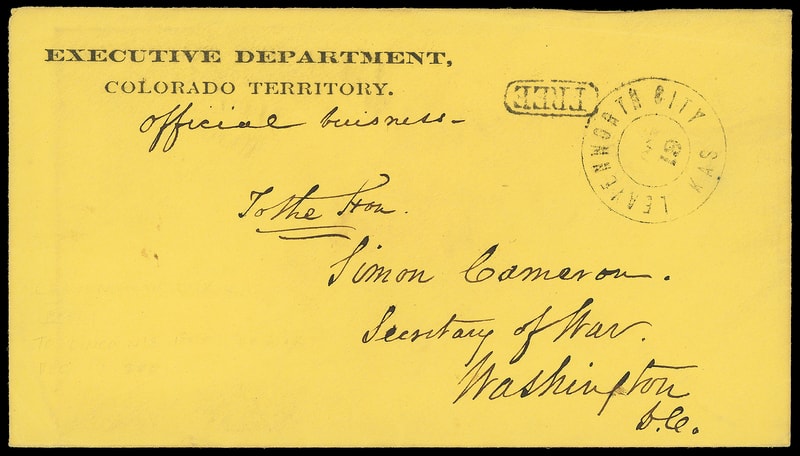 EXECUTIVE DEPARTMENT,
COLORADO TERRITORY.
official buisness-
FREE
LEAVENWORTH CITY
KAS
To the Hon.
Simon Cameron.
Secretary of War.
Washington
D.C.